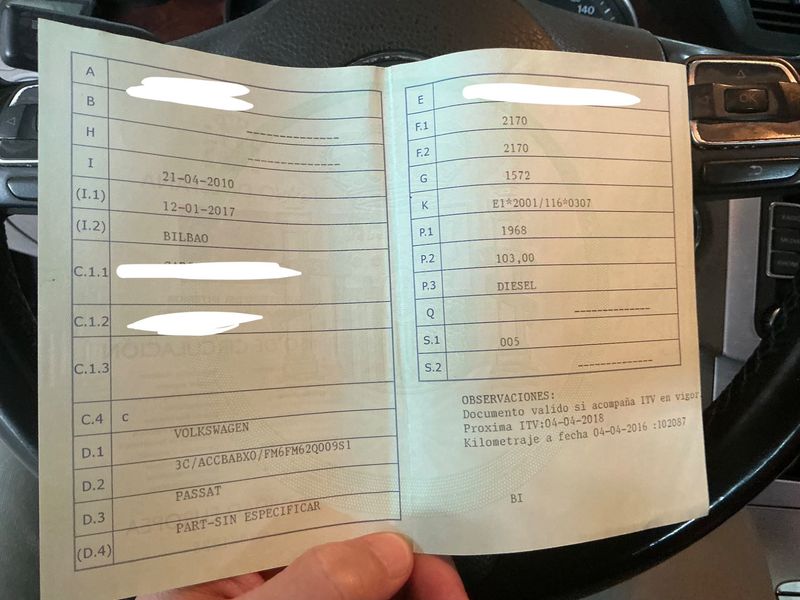 A
B
H ------------
I ------------
(I.1) 21-04-2010
(I.2) 12-01-2017
BILBAO
C.1.1
C.1.2
C.1.3
C.4 C
D.1 VOLKSWAGEN
D.2 3C/ACCBABX0/FM6FM62Q009S1
D.3 PASSAT
(D.4) PART-SIN ESPECIFICAR
E
F.1 2170
F.2 2170
G 1572
K E1*2001/116*0307
P.1 1968
P.2 103,00
P.3 DIESEL
Q ------------
S.1 005
S.2 ------------
OBSERVACIONES:
Documento valido si acompaña ITV en vigor.
Proxima ITV:04-04-2018
Kilometraje a fecha 04-04-2016 :102087
BI
140
OK